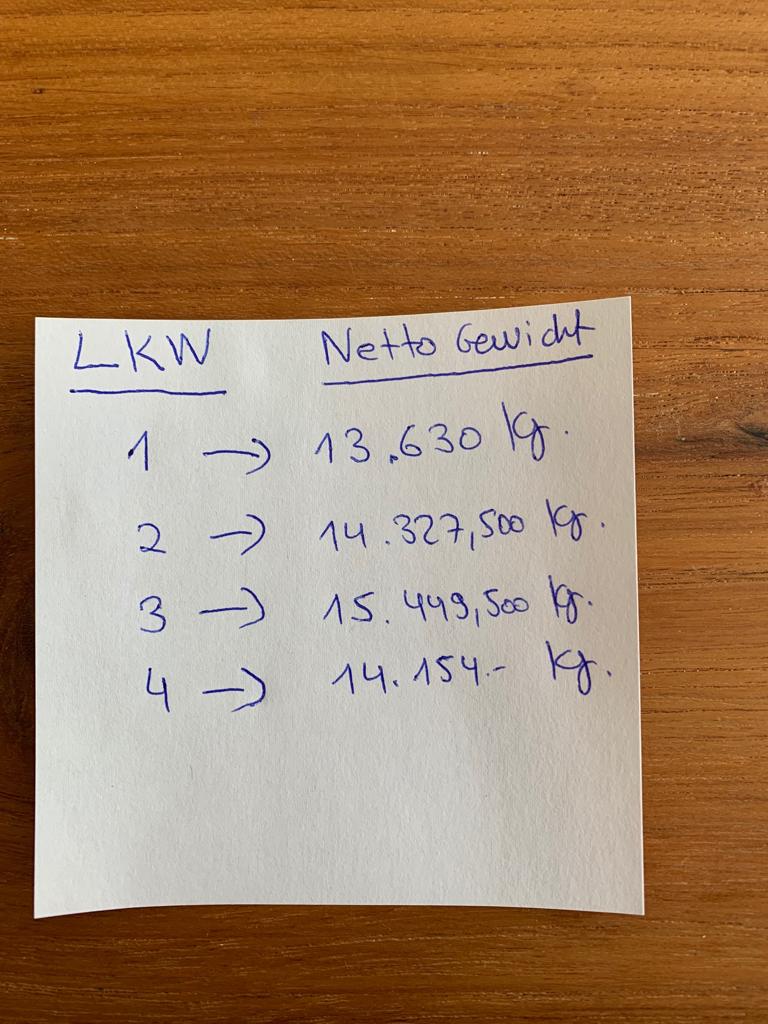 LKW Netto Gewicht
1 → 13.630 kg.
2 → 14.327,500 kg.
3 → 15.449,500 kg.
4 → 14.154.- kg.